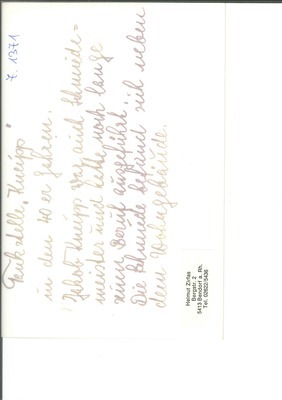 7. 1371
Tankstelle „Kneipp“
in den 40er Jahren.
Jakob Kneipp war auch Schmiede-
meister und hatte noch lange
seinen Beruf ausgeführt.
Die Schmiede befand sich neben
dem Wohngebäude.
Helmut Zirfas
Bergstr. 2
5413 Bendorf a. Rh.
Tel. 02622/5436